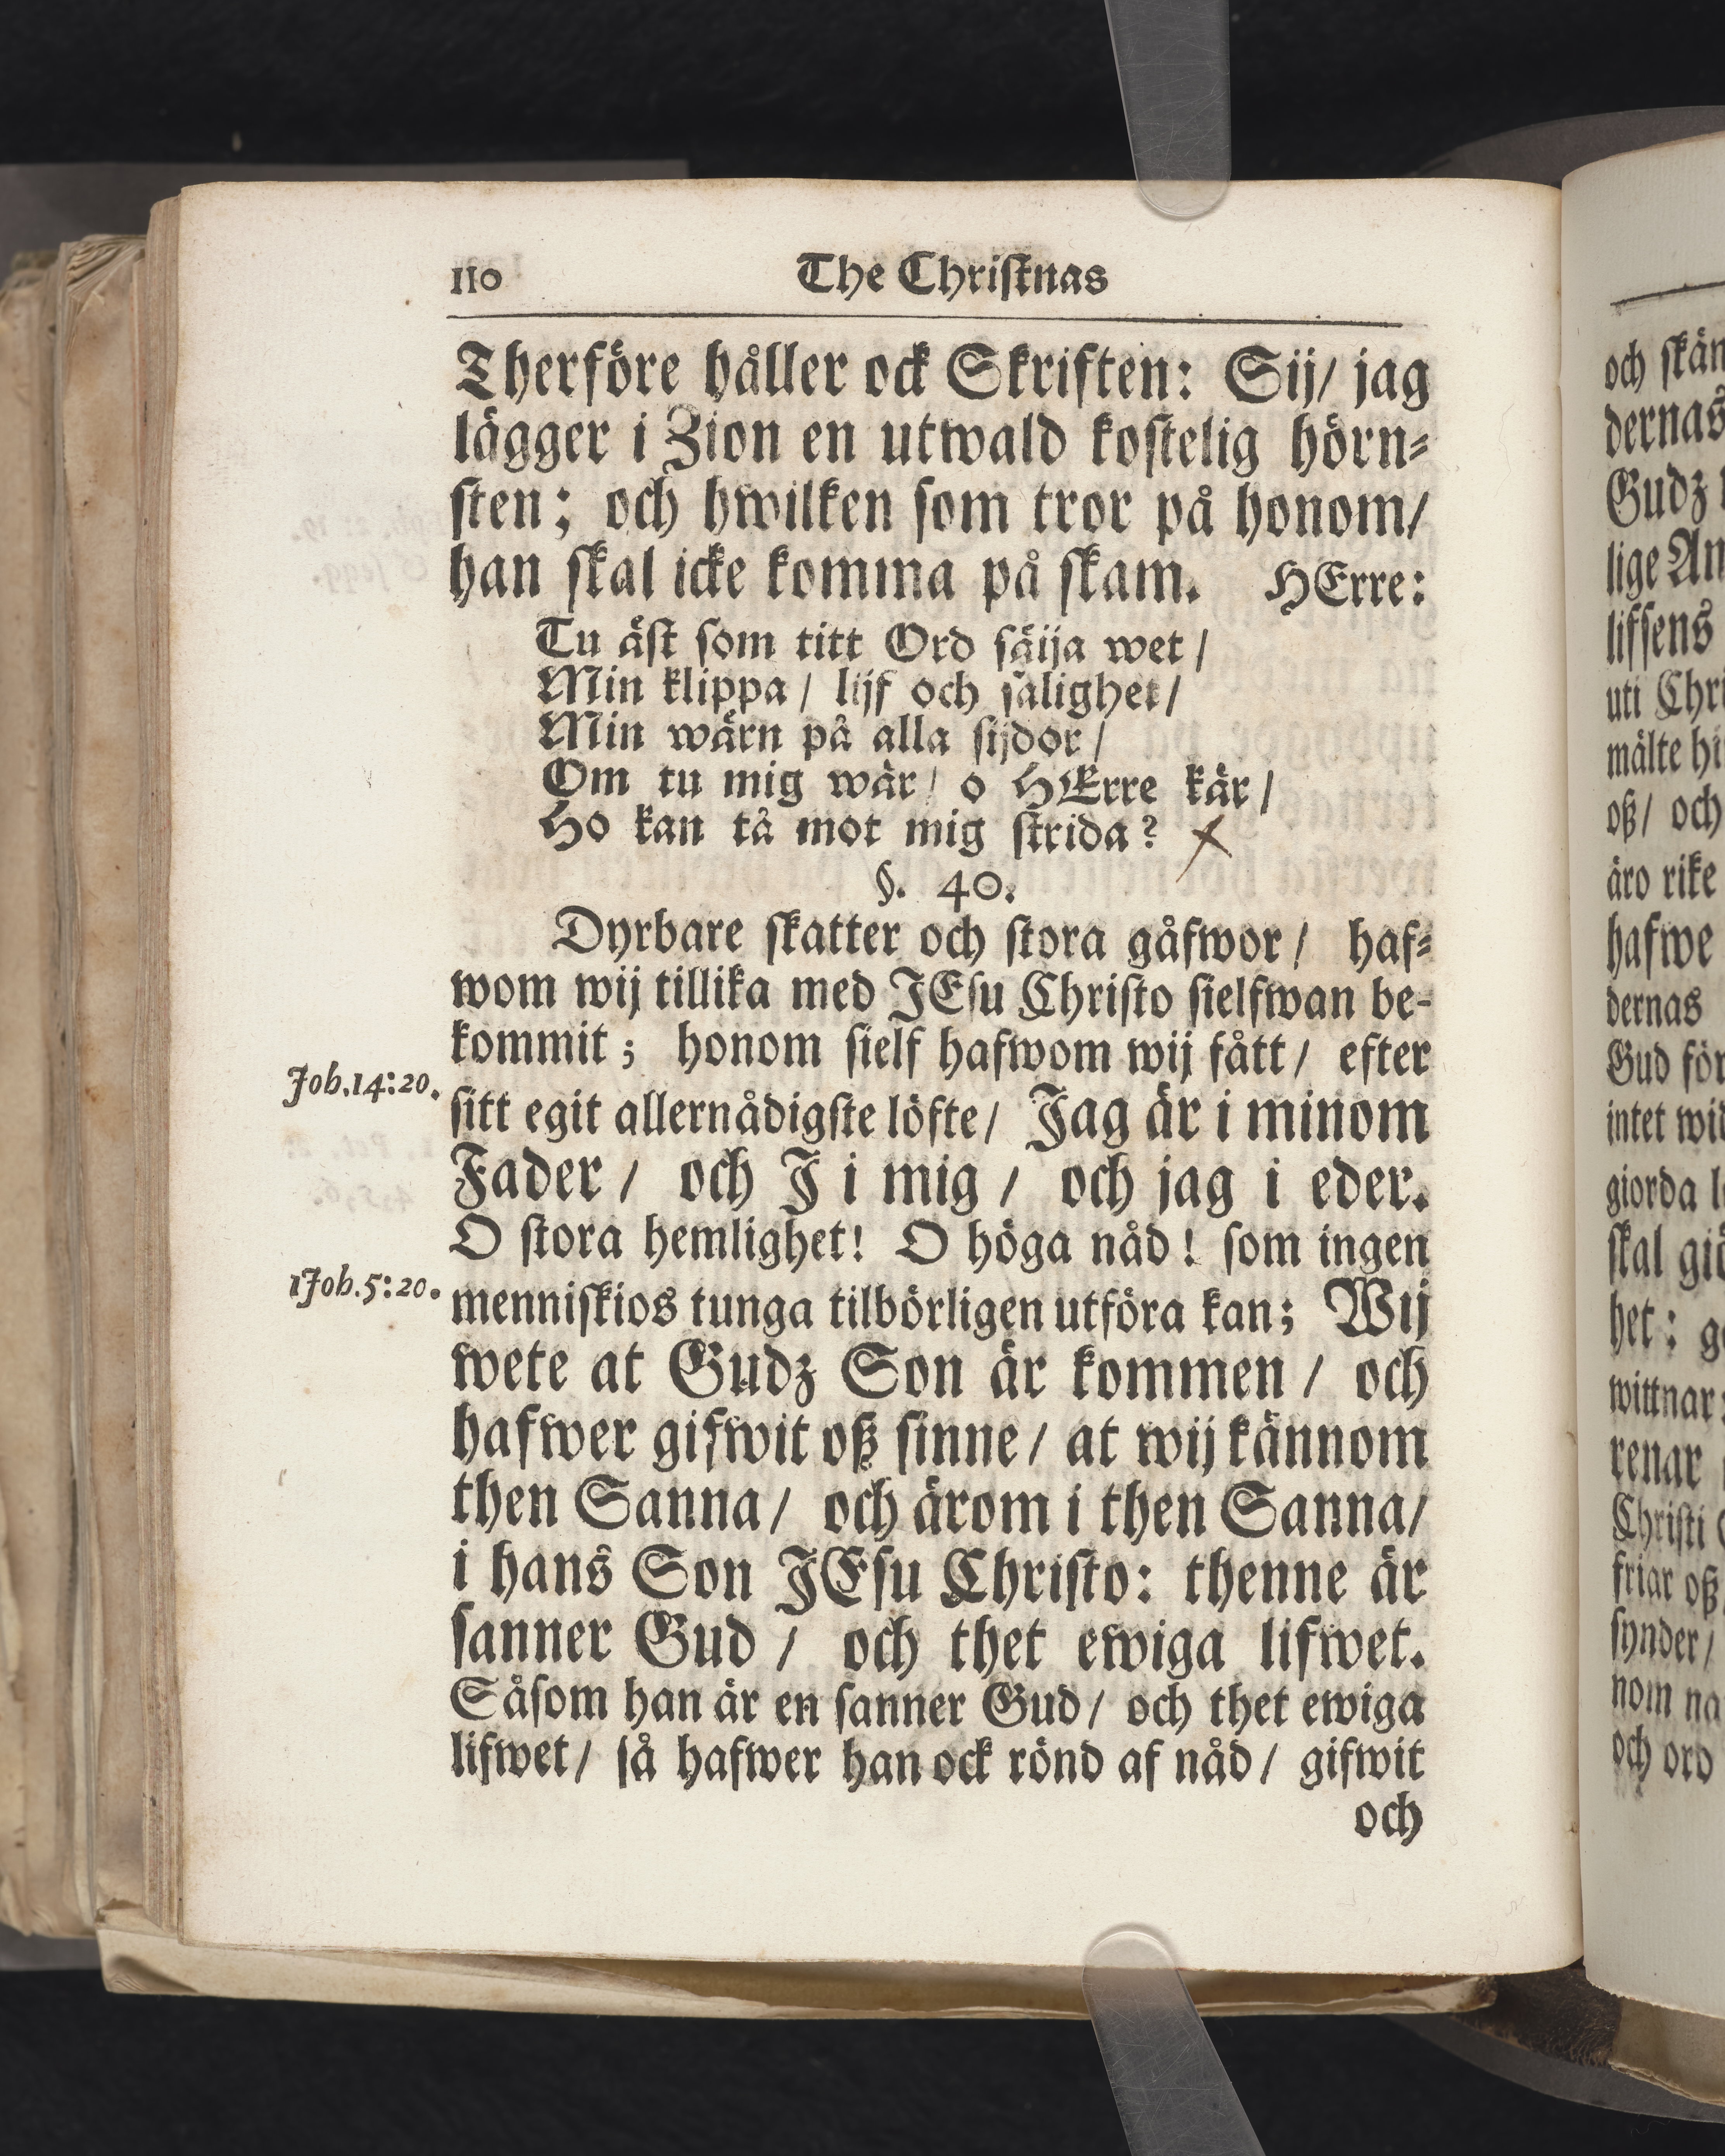 110 The Christnas
Therföre håller ock Skriften: Sij/ jag
lägger i Zion en utwald kostelig hörn-
sten; och hwilken som tror på honom/
han skal icke komma på skam. HErre:
Tu äst som titt Ord säija wet/
Min klippa/ lijf och salighet/
Min wärn på alla sijdor/
Om tu mig wär/ o HErre kär/
Ho kan tå mot mig strida?
§. 40.
Dyrbare skatter och stora gåfwor/ haf-
wom wij tillika med JEsu Christo sielfwan be-
kommit; honom sielf hafwom wij fått/ efter
Joh.14:20.
sitt egit allernådigste löfte/ Jag är i minom
Fader/ och J i mig/ och jag i eder.
O stora hemlighet! O höga nåd! som ingen
1Joh.5:20.
menniskios tunga tilbörligen utföra kan; Wij
wete at Gudz Son är kommen/ och
hafwer gifwit oß sinne/ at wij kännom
then Sanna/ och ärom i then Sanna/
i hans Son JEsu Christo: thenne är
sanner Gud/ och thet ewiga lifwet.
Såsom han är en sanner Gud/ och thet ewiga
lifwet/ så hafwer han ock rönd af nåd/ gifwit
och
och
dernas
Gudz
lige
lifsens
uti
mälte
oß/ och
äro rike
hafwe
dernas
Gud för
intet
giorda
skal
het:
wittnar:
renar
Christi
friar oß
synder/
nom
och ord